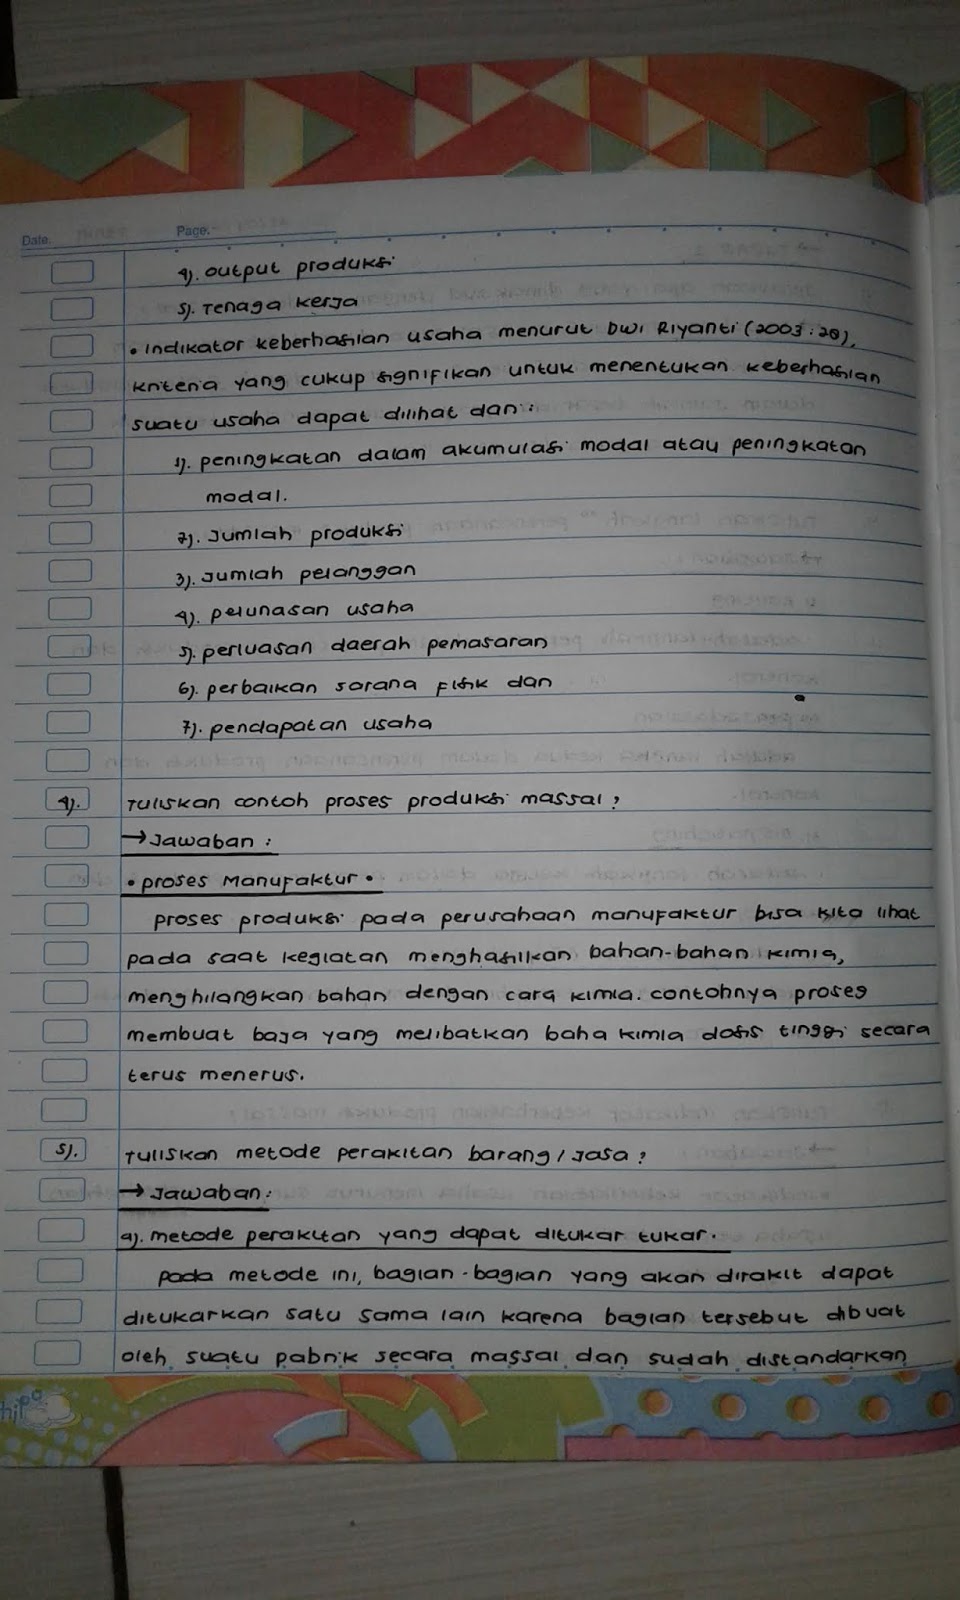 Date: Page:
4). output produksi
5). Tenaga kerja
• Indikator keberhasilan usaha menurut Dwi Riyanti (2003:28),
kriteria yang cukup signifikan untuk menentukan keberhasilan
suatu usaha dapat dilihat dari :
1). peningkatan dalam akumulasi modal atau peningkatan
modal.
2). Jumlah produksi
3). Jumlah pelanggan
4). perluasan usaha
5). perluasan daerah pemasaran
6). perbaikan sarana fisik dan
7). pendapatan usaha
4). Tuliskan contoh proses produksi massal ?
→ Jawaban :
• proses Manufaktur •
proses produksi pada perusahaan manufaktur bisa kita lihat
pada saat kegiatan menghasilkan bahan-bahan kimia,
menghilangkan bahan dengan cara kimia. contohnya proses
membuat baja yang melibatkan baha kimia dosis tinggi secara
terus menerus.
5). Tuliskan metode perakitan barang / Jasa ?
→ Jawaban :
a). metode perakitan yang dapat ditukar tukar.
pada metode ini, bagian-bagian yang akan dirakit dapat
ditukarkan satu sama lain karena bagian tersebut dibuat
oleh suatu pabrik secara massal dan sudah distandarkan